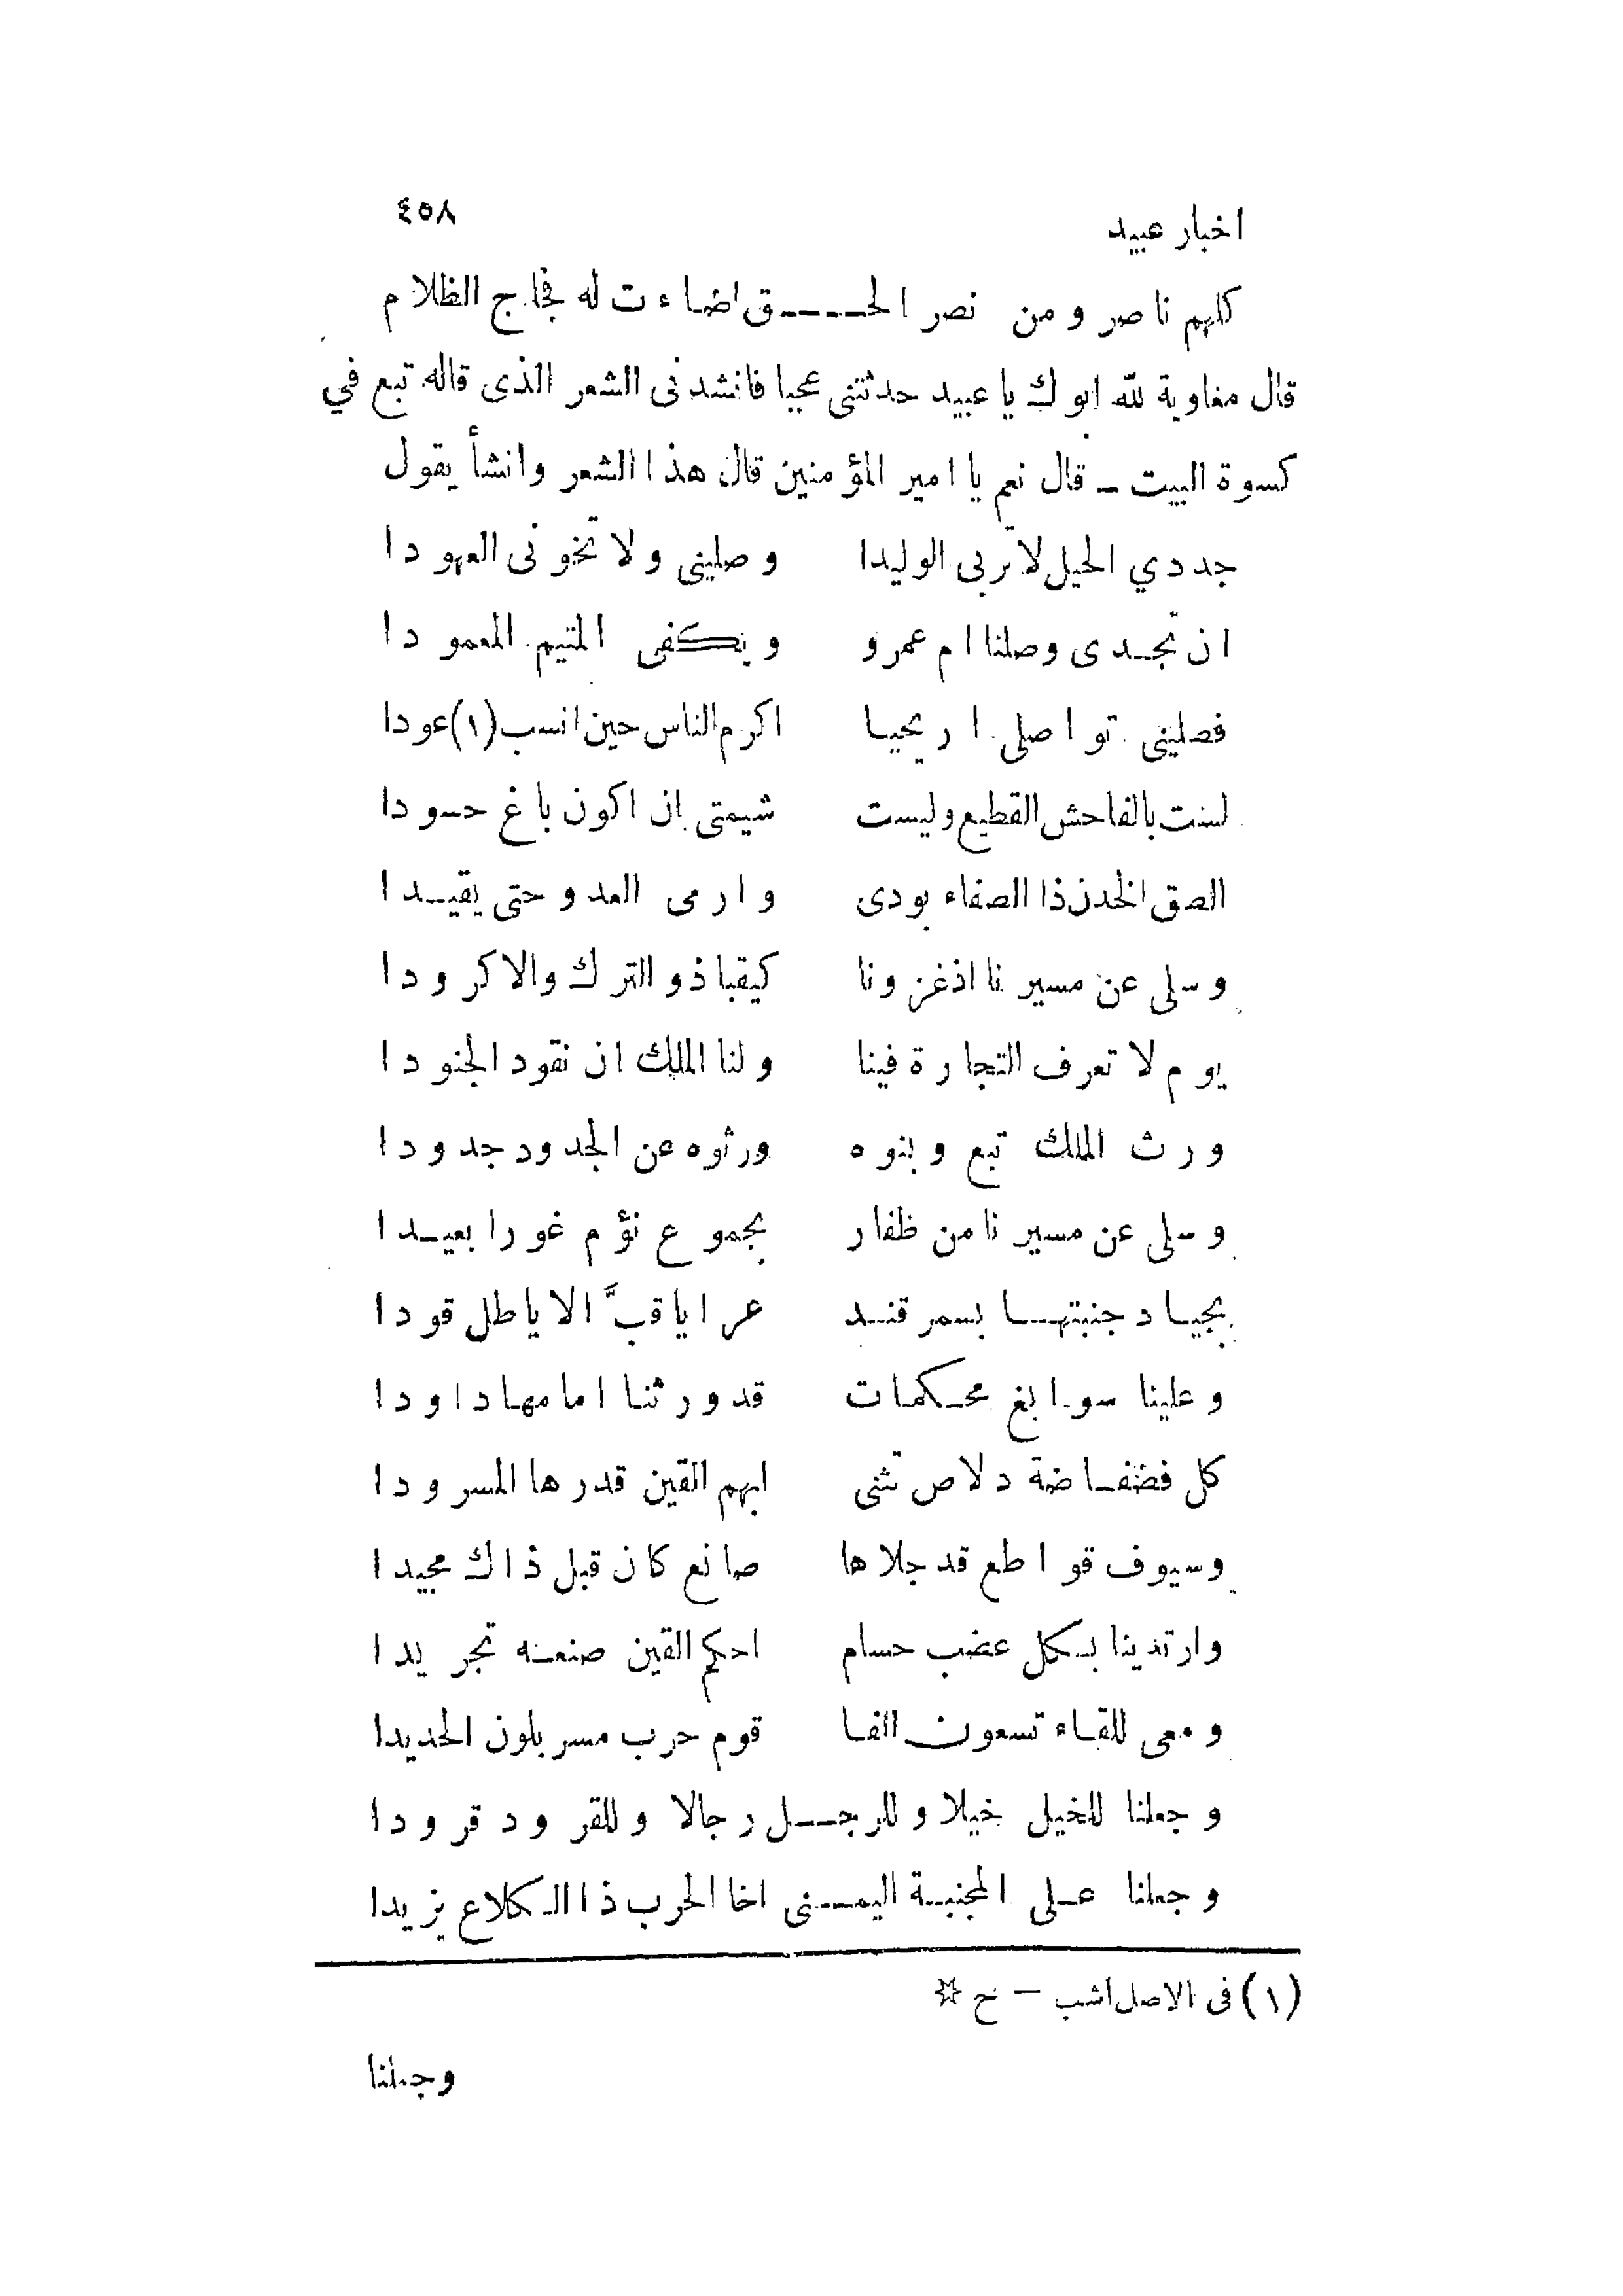 اخبار عبيد ٤٥٨
كلهم ناصر ومن نصر الحـــق اضاءت له فجاج الظلام
قال معاوية لله ابوك يا عبيد حدثتنى عجبا فانشدنى الشعر الذى قاله تبع في
كسوة البيت ـ قال نعم يا امير المؤمنين قال هذا الشعر وانشأ يقول
جددي الحبل لا تربى الوليدا وصلينى ولا تخونى العهودا
ان تجدى وصلنا ام عمرو ويكفى المتيم المعمودا
فصلينى تواصلى اريحيا اكرم الناس حين انسب (١) عودا
لست بالفاحش القطيع وليست شيمتى ان اكون باغ حسودا
الصق الخدن ذا الصفاء بودى وارمى العدو حتى يقيدا
وسلى عن مسيرنا اذ غزونا كيقباذ والترك والاكرودا
يوم لا تعرف التجارة فينا ولنا الملك ان نقود الجنودا
ورث الملك تبع وبنوه ورثوه عن الجدود جدودا
وسلى عن مسيرنا من ظفار بجموع نؤم غورا بعيدا
بجياد جنبتها بسمرقند عرايا قبّ الاياطل قودا
وعلينا سوابغ محكمات قد ورثنا امامها داودا
كل فضفاضة دلاص تثنى ابهم القين قدرها المسرودا
وسيوف قواطع قد جلاها صانع كان قبل ذاك مجيدا
وارتدينا بكل عضب حسام احكم القين صنعه تجريدا
ومعى للقاء تسعون الفا قوم حرب مسربلون الحديدا
وجعلنا للخيل خيلا وللرجـــل رجالا وللقرود قرودا
وجعلنا على المجنبة اليمـــنى اخا الحرب ذا الكلاع يزيدا
(١) فى الاصل اشب — ح ☆
وجعلنا